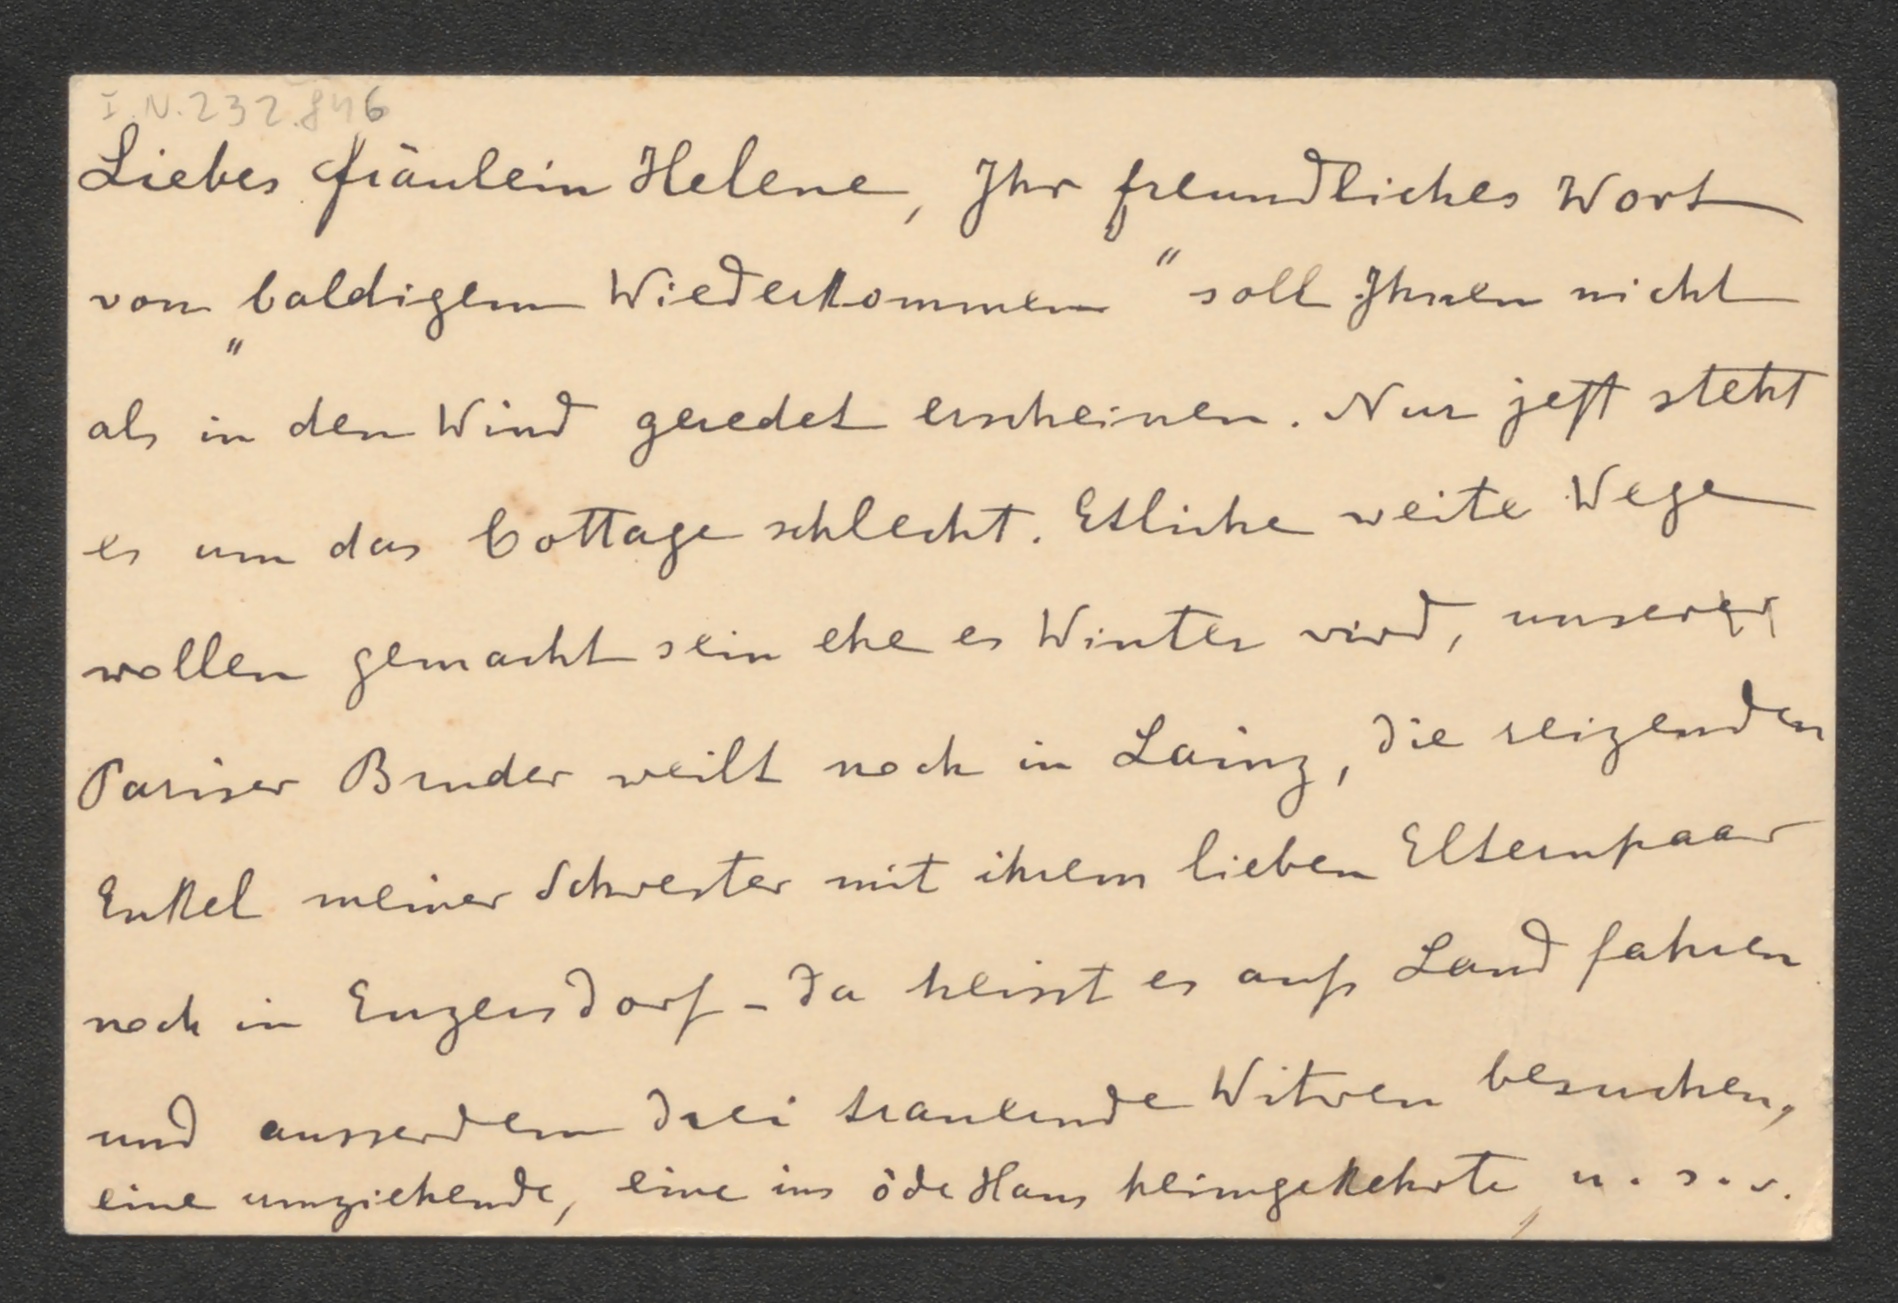 I.N.232.846
Liebes Fräulein Helene, Ihr freundliches Wort
vom „baldigem Wiederkommen“ soll Ihnen nicht
als in den Wind geredet erscheinen. Nur jetzt steht
es um das Cottage schlecht. Etliche weite Wege
wollen gemacht sein ehe es Winter wird, unser
Pariser Bruder weilt noch in Lainz, die reizenden
Enkel meiner Schwester mit ihrem lieben Elternpaar
noch in Enzersdorf – da heisst es aufs Land fahren
und ausserdem drei trauernde Witwen besuchen,
eine umziehende, eine ins öde Haus heimgekehrte, u. s. w.